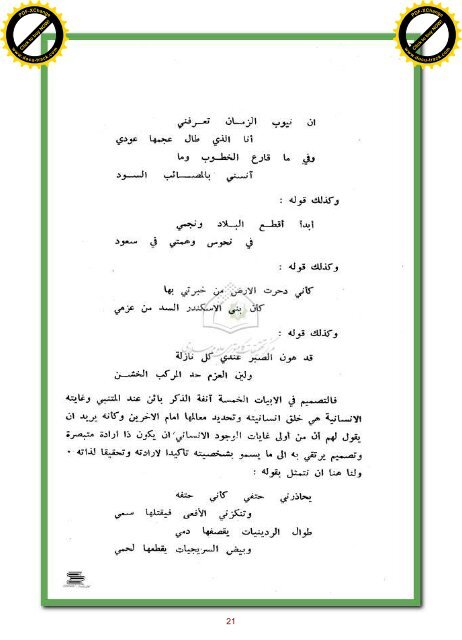 PDF-XChange
Click to buy NOW!
www.docu-track.com
PDF-XChange
Click to buy NOW!
www.docu-track.com
ان نيوب الزمان تعرفني
أنا الذي طال عجمها عودي
وفي ما قارع الخطوب وما
آنسني بالمصائب السود
وكذلك قوله :
ابدأ أقطع البلاد ونجمي
في نحوس وهمتي في سعود
وكذلك قوله :
كأني دحوت الارض من خبرتي بها
كأن بنى الاسكندر السد من عزمي
وكذلك قوله :
قد هون الصبر عندي كل نازلة
ولين العزم حد المركب الخشن
فالتصميم في الابيات الخمسة آنفة الذكر بائن عند المتنبي وغايته
الانسانية هي خلق انسانيته وتحديد معالمها امام الاخرين وكأنه يريد ان
يقول لهم أن من أولى غايات الوجود الانساني ان يكون ذا ارادة متبصرة
وتصميم يرتقي به الى ما يسمو بشخصيته تأكيدا لارادته وتحقيقا لذاته ·
ولنا هنا ان نتمثل بقوله :
يحاذرني حتفي كأني حتفه
وتنكزني الأفعى فيقتلها سمي
طوال الردينيات يقصفها دمي
وبيض السريجيات يقطعها لحمي
21